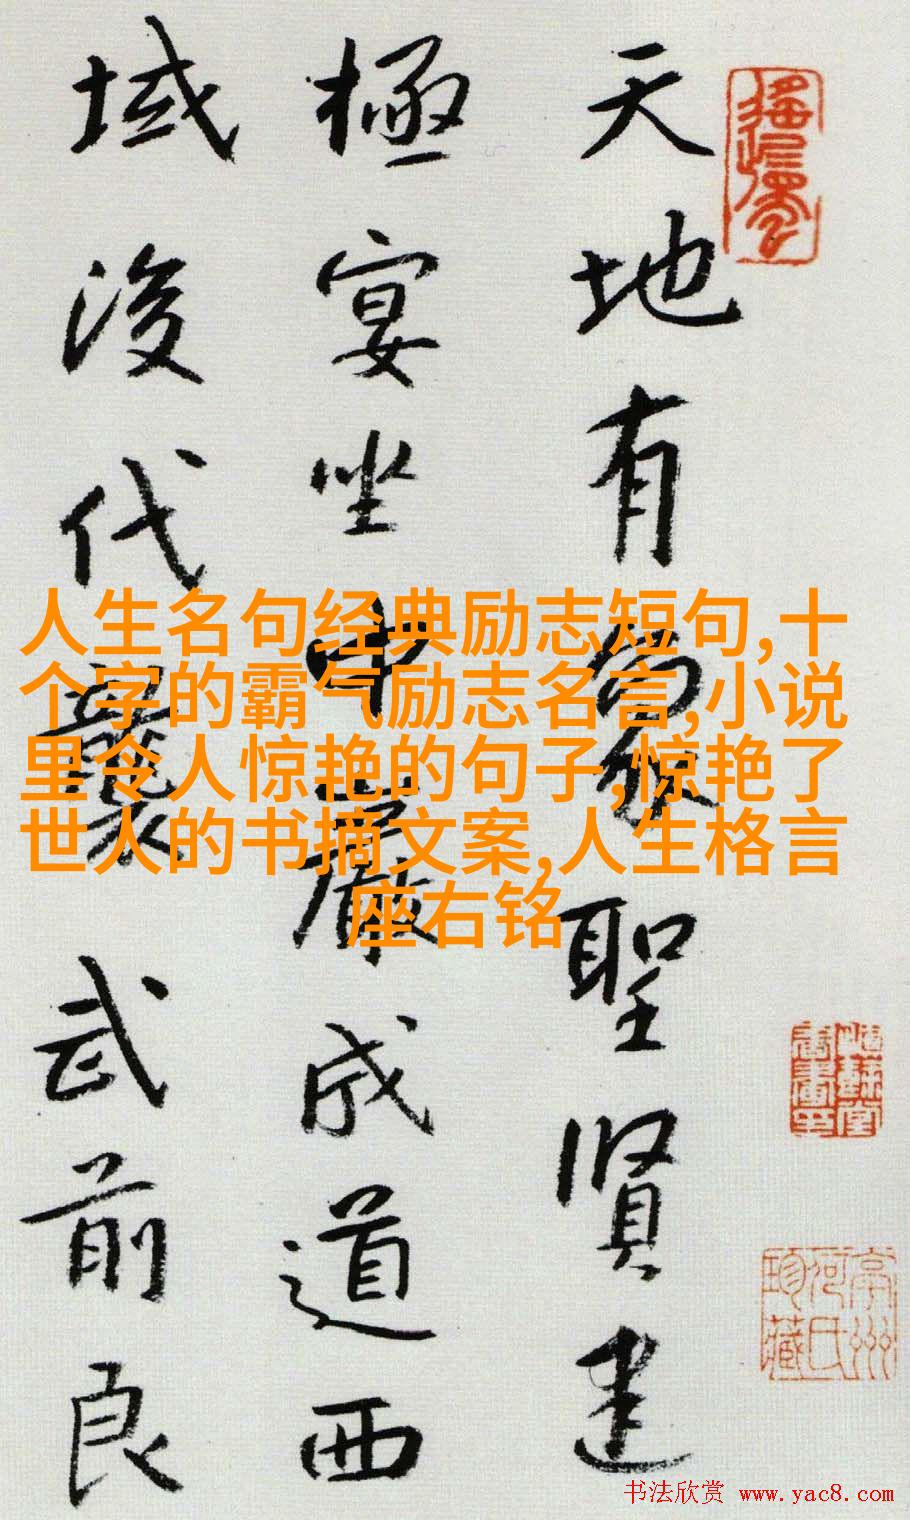 天地有象聖賢建
極宴坐中嚴成道西
域後代武前良
人生名句经典励志短句,十
个字的霸气励志名言,小说
里令人惊艳的句子,惊艳了
世人的书摘文案,人生格言
座右铭
亭州
何氏
珍藏
书法欣赏 www.yac8.com